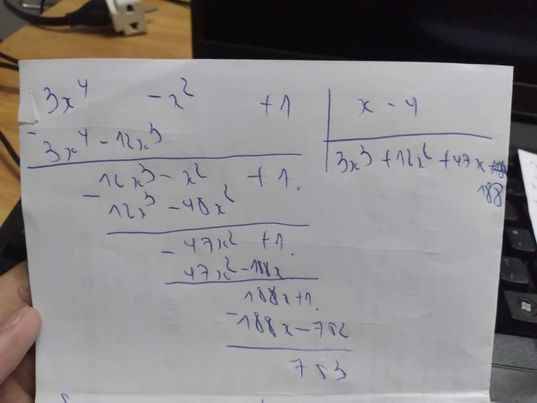 3x⁴ - x² + 1 | x - 4
- 3x⁴ - 12x³ | 3x³ + 12x² + 47x +
12x³ - x² + 1. 188
- 12x³ - 48x²
47x² + 1.
- 47x² - 188x
188x + 1.
- 188x - 752
753